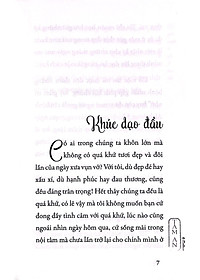 Khúc dạo đầu
Có ai trong chúng ta khôn lớn mà
không có quá khứ tươi đẹp và đôi
lần của ngày xưa vụn vỡ? Với tôi, dù đẹp đẽ hay
xấu xí, dù hạnh phúc hay đau thương, chúng đều
cũng đáng trân trọng! Hết thảy chúng ta đều là
quá khứ, có lẽ vậy mà tôi không muốn bạn cứ
đong đầy tình cảm với quá khứ, lúc nào cũng
ngoái nhìn ngày hôm qua, cứ sống mãi trong
nội tâm mà chưa lần trở lại cho chính mình ở
TÂM AN
7